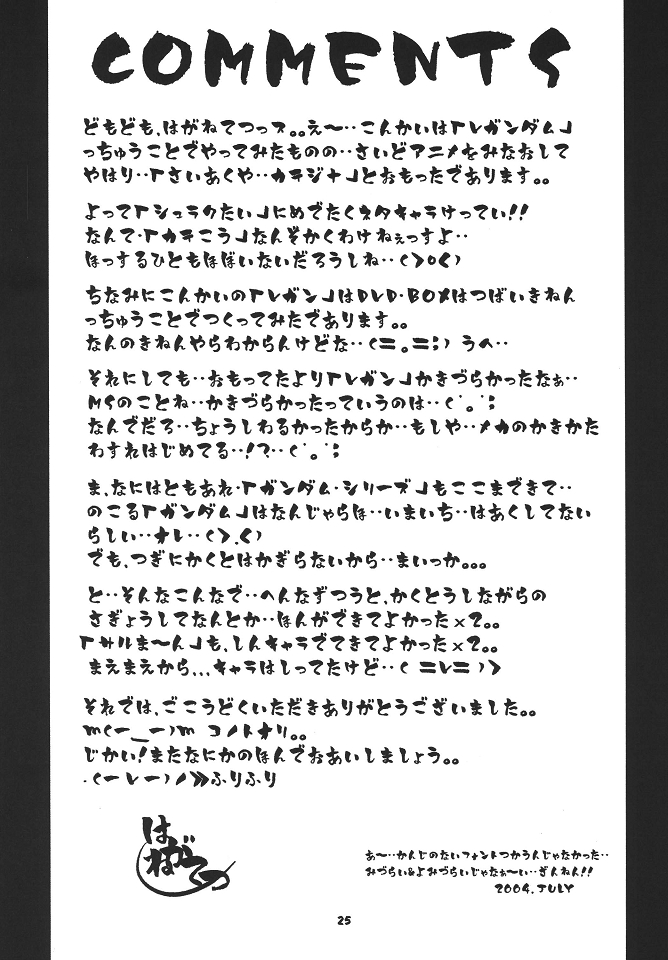 COMMENTS
どもども、はがねてつっス。。え〜‥こんかいは「Vガンダム」
っちゅうことでやってみたものの‥さいどアニメをみなおして
やはり‥「さいあくや‥カテジナ」とおもったであります。。
よって「シュラクたい」にめでたくネタキャラけってい!!
なんで・「カテこう」なんぞかくわけねぇっすよ‥
ほっするひともほぼいないだろうしね‥(>o<)
ちなみにこんかいの「Vガン」はDVD・BOXはつばいきねん
っちゅうことでつくってみたであります。。
なんのきねんやらわからんけどな‥(=。=;) うへ‥
それにしても‥おもってたより「Vガン」かきづらかったなぁ‥
MSのことね‥かきづらかったっていうのは‥(゜。゜;
なんでだろ‥ちょうしわるかったからか‥もしや‥メカのかきかた
わすれはじめてる‥!?‥(゜。゜;
ま、なにはともあれ・「ガンダム・シリーズ」もここまできて‥
のこる「ガンダム」はなんじゃらほ‥いまいち‥はあくしてない
らしい‥オレ‥(>.<)
でも、つぎにかくとはかぎらないから‥まいっか。。。
と‥そんなこんなで‥へんなずつうと、かくとうしながらの
さぎょうしてなんとか‥ほんができてよかった×2。。
「サルま〜ん」も、しんキャラでてきてよかった×2。。
まえまえから...キャラはしってたけど‥( =v= )>
それでは、ごこうどくいただきありがとうございました。。
m(ー_ー)m コノトオリ。。
じかい!またなにかのほんでおあいしましょう。。
.(ーvー)ノ≫ふりふり
はがねてつ
あ〜‥かんじのないフォントつかうんじゃなかった‥
みづらい&よみづらいじゃなぁ〜い‥ざんねん!!
2004.JULY
25